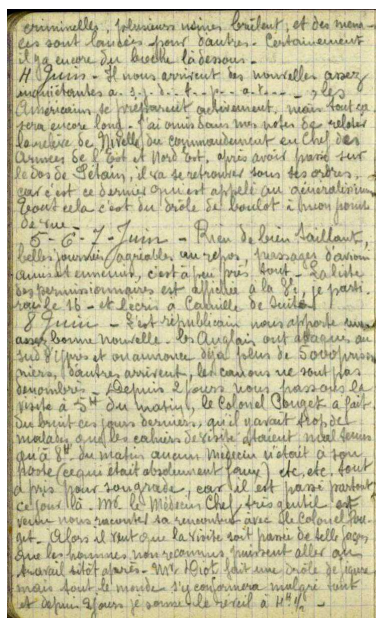 criminelles, plusieurs usines brûlent, et des mena-
ces sont lancées pour d'autres. Certainement
il y a encore du boche là dessous.
4 Juin - Il nous arrivent des nouvelles assez
inquiétantes a. s. j. d. t. p. a. t. les
Américains se préparent activement, mais tout ça
sera encore long. J'ai omis dans mes notes de relater
la relève de Nivelle du commandement en Chef des
Armées de l'Est et Nord Est, après avoir passé sur
le dos de Pétain, il va se retrouver sous ses ordres,
car c'est ce dernier qui est appelé au généralissime
Tout cela c'est du drôle de boulot à mon point
de vue.
5-6-7-Juin - Rien de bien saillant,
belles journées agréables au repos, passages d'avions
amis et ennemis, c'est à peu près tout - La liste
des permissionnaires est affichée à la je parti
rai le 16 - et j'écris à Camille de suite.
8 Juin - L'est républicain nous apporte une
assez bonne nouvelle. Les Anglais ont attaqué au
sud d'Ypres et on annonce déjà plus de 5000 prison
niers, d'autres arrivent, les canons ne sont pas
dénombrés - Depuis 2 jours nous passons la
visite à 5H du matin, le Colonel Pouget a fait
du bruit ces jours derniers, qu'il y avait trop de
malades, que les cahiers de visite étaient mal tenus
qu'à 8H du matin aucun médecin n'était à son
poste (ce qui était absolument faux) etc, etc. tout
a pris pour son grade, car il est passé partout
ce jour là. Mr le Médecin Chef, très gentil est
venu nous raconter sa rencontre avec le Colonel Pou-
get - Alors il veut que la visite soit passée de telle façon
que les hommes non reconnus puissent aller au
travail sitôt après. Mr fait une drôle de figure
mais tout le monde s'y conformera malgré tout
et depuis 2 jours je sonne le réveil à 4H 1/2 -